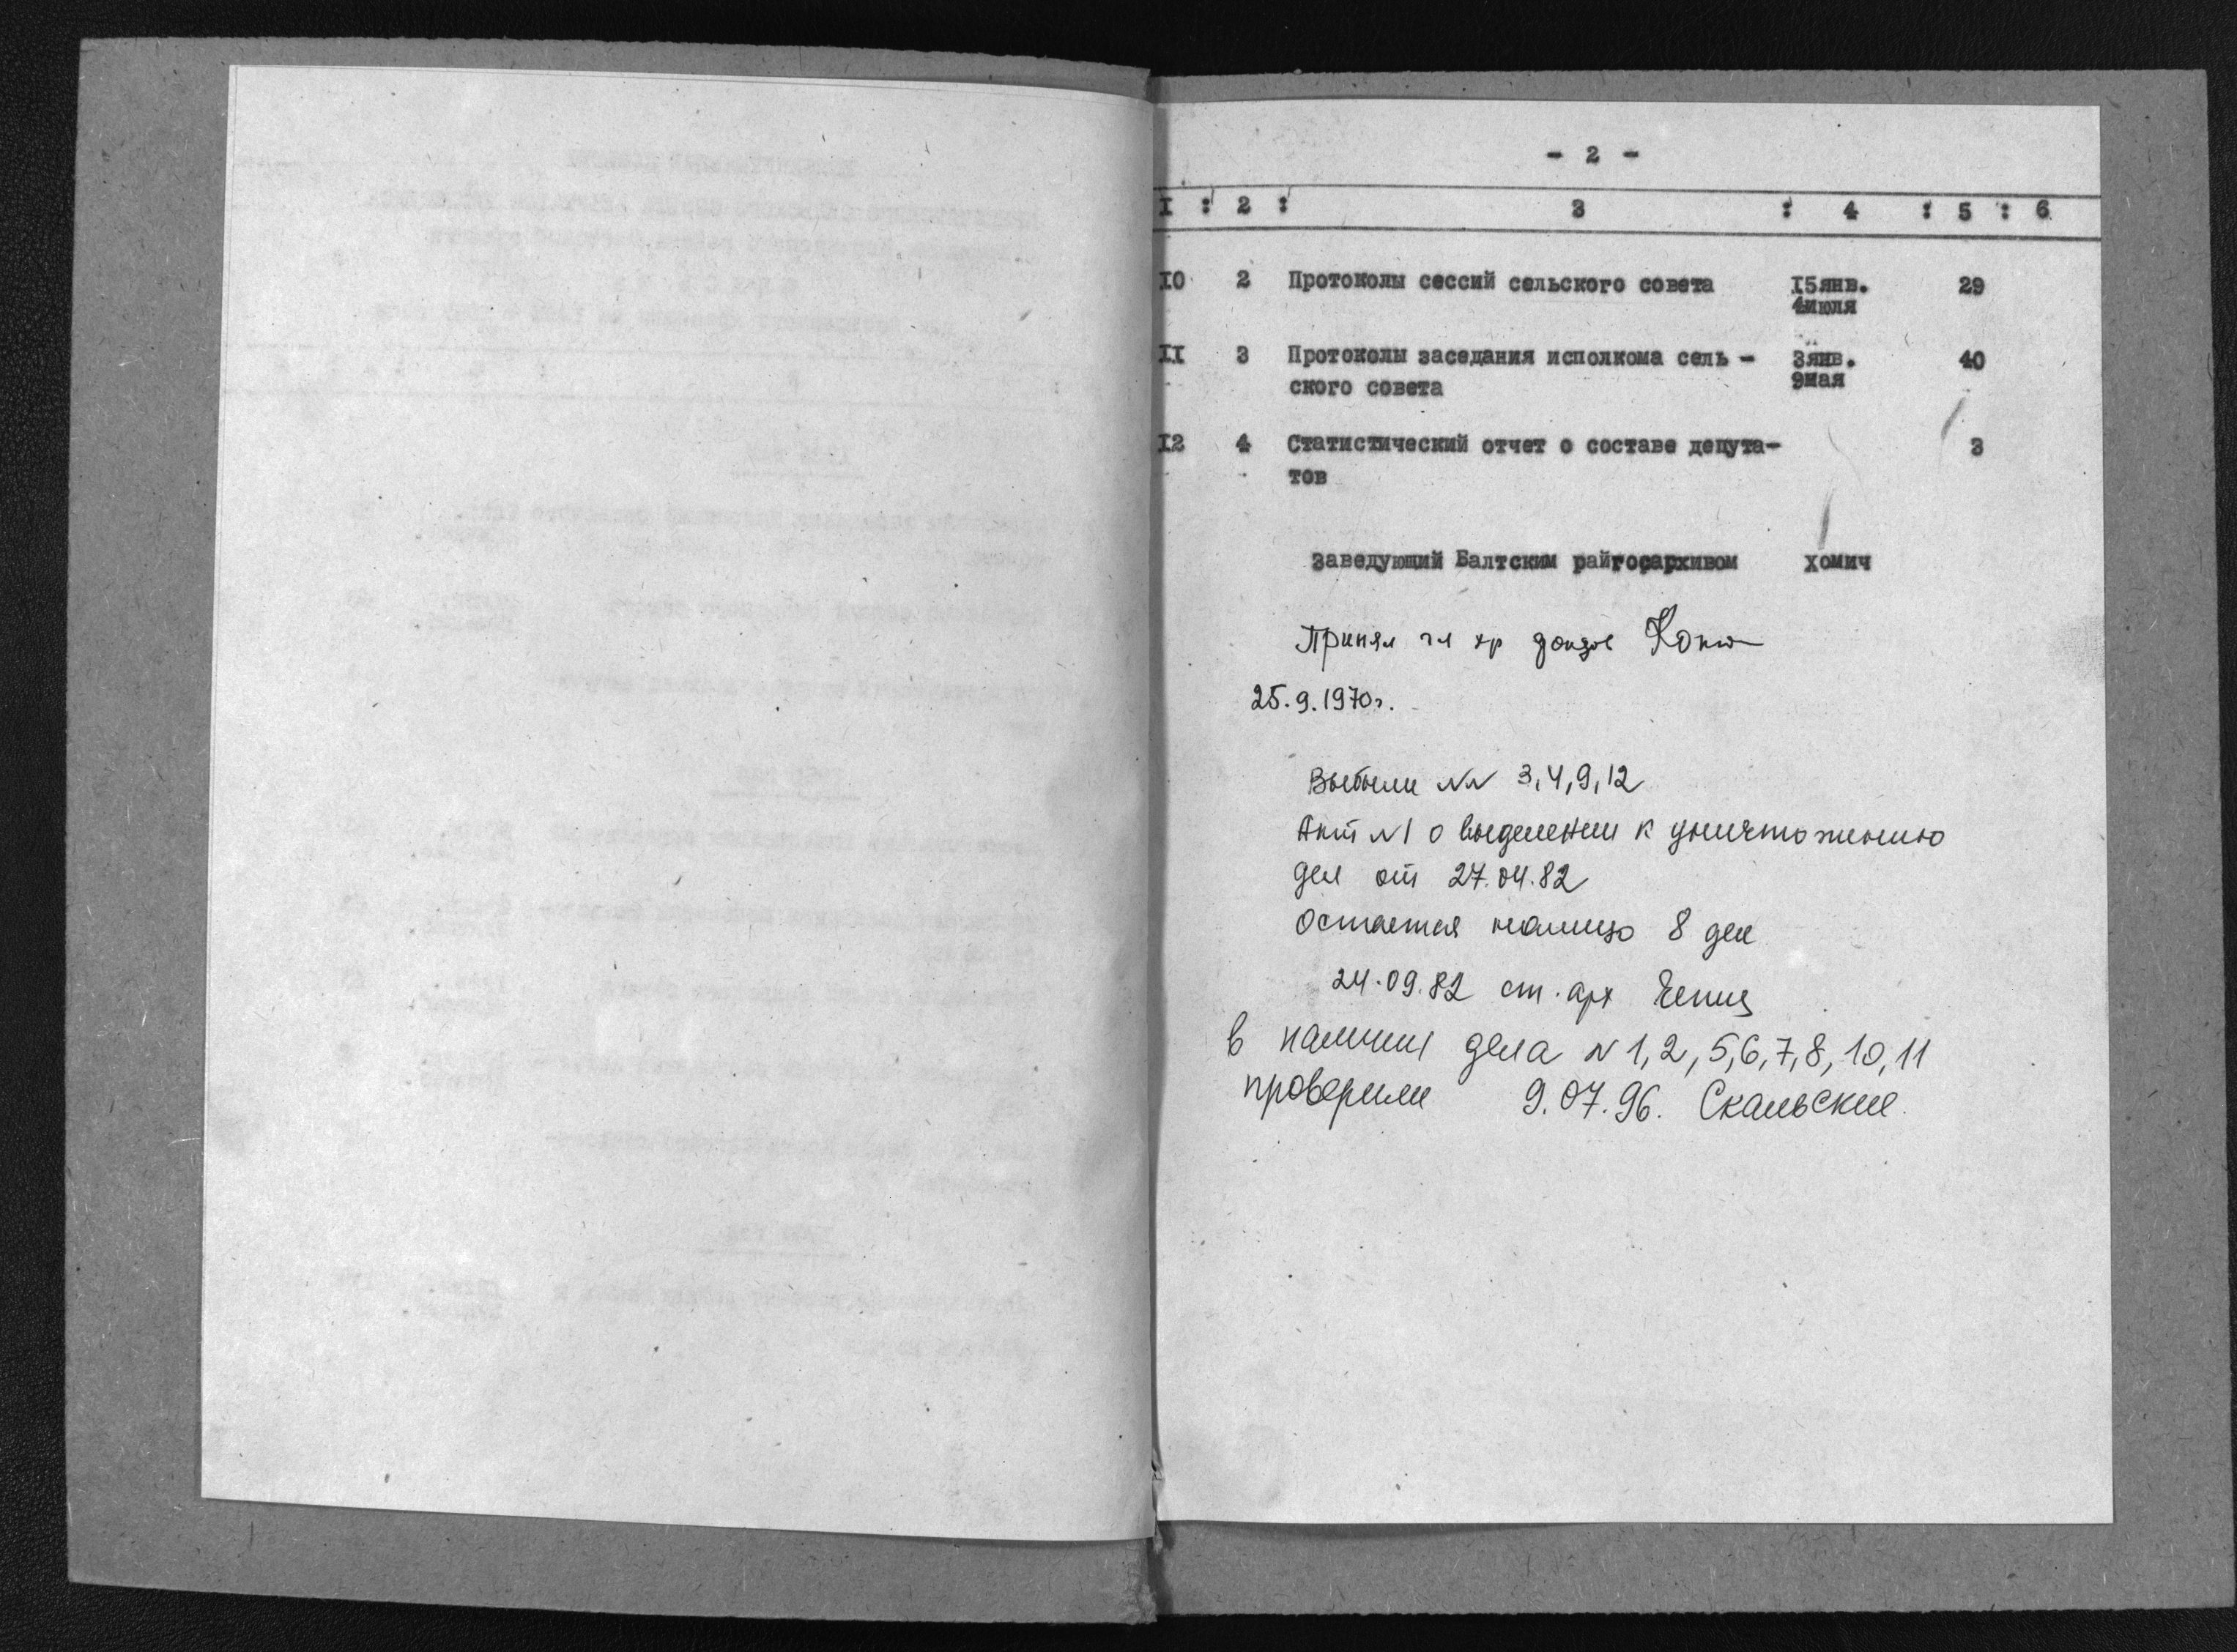 - 2 -
I : 2 : 3 : 4 : 5 : 6
10 2 Протоколы сессий сельского совета I5янв. 29
4июля
II 3 Протоколы заседания исполкома сель - 3янв. 40
ского совета 9мая
I2 4 Статистический отчет о составе депута- 3
тов
Заведующий Балтским райгосархивом хомич
Принял гл хр
25.9.1970г.
Выбыли №№ 3,4,9,12
Акт №1 о выделении к уничтожению
дел от 27.04.82
Остается налицо 8 дел
24.09.82 ст. арх
в наличии дела №1,2,5,6,7,8,10,11
проверили 9.07.96. Скальские